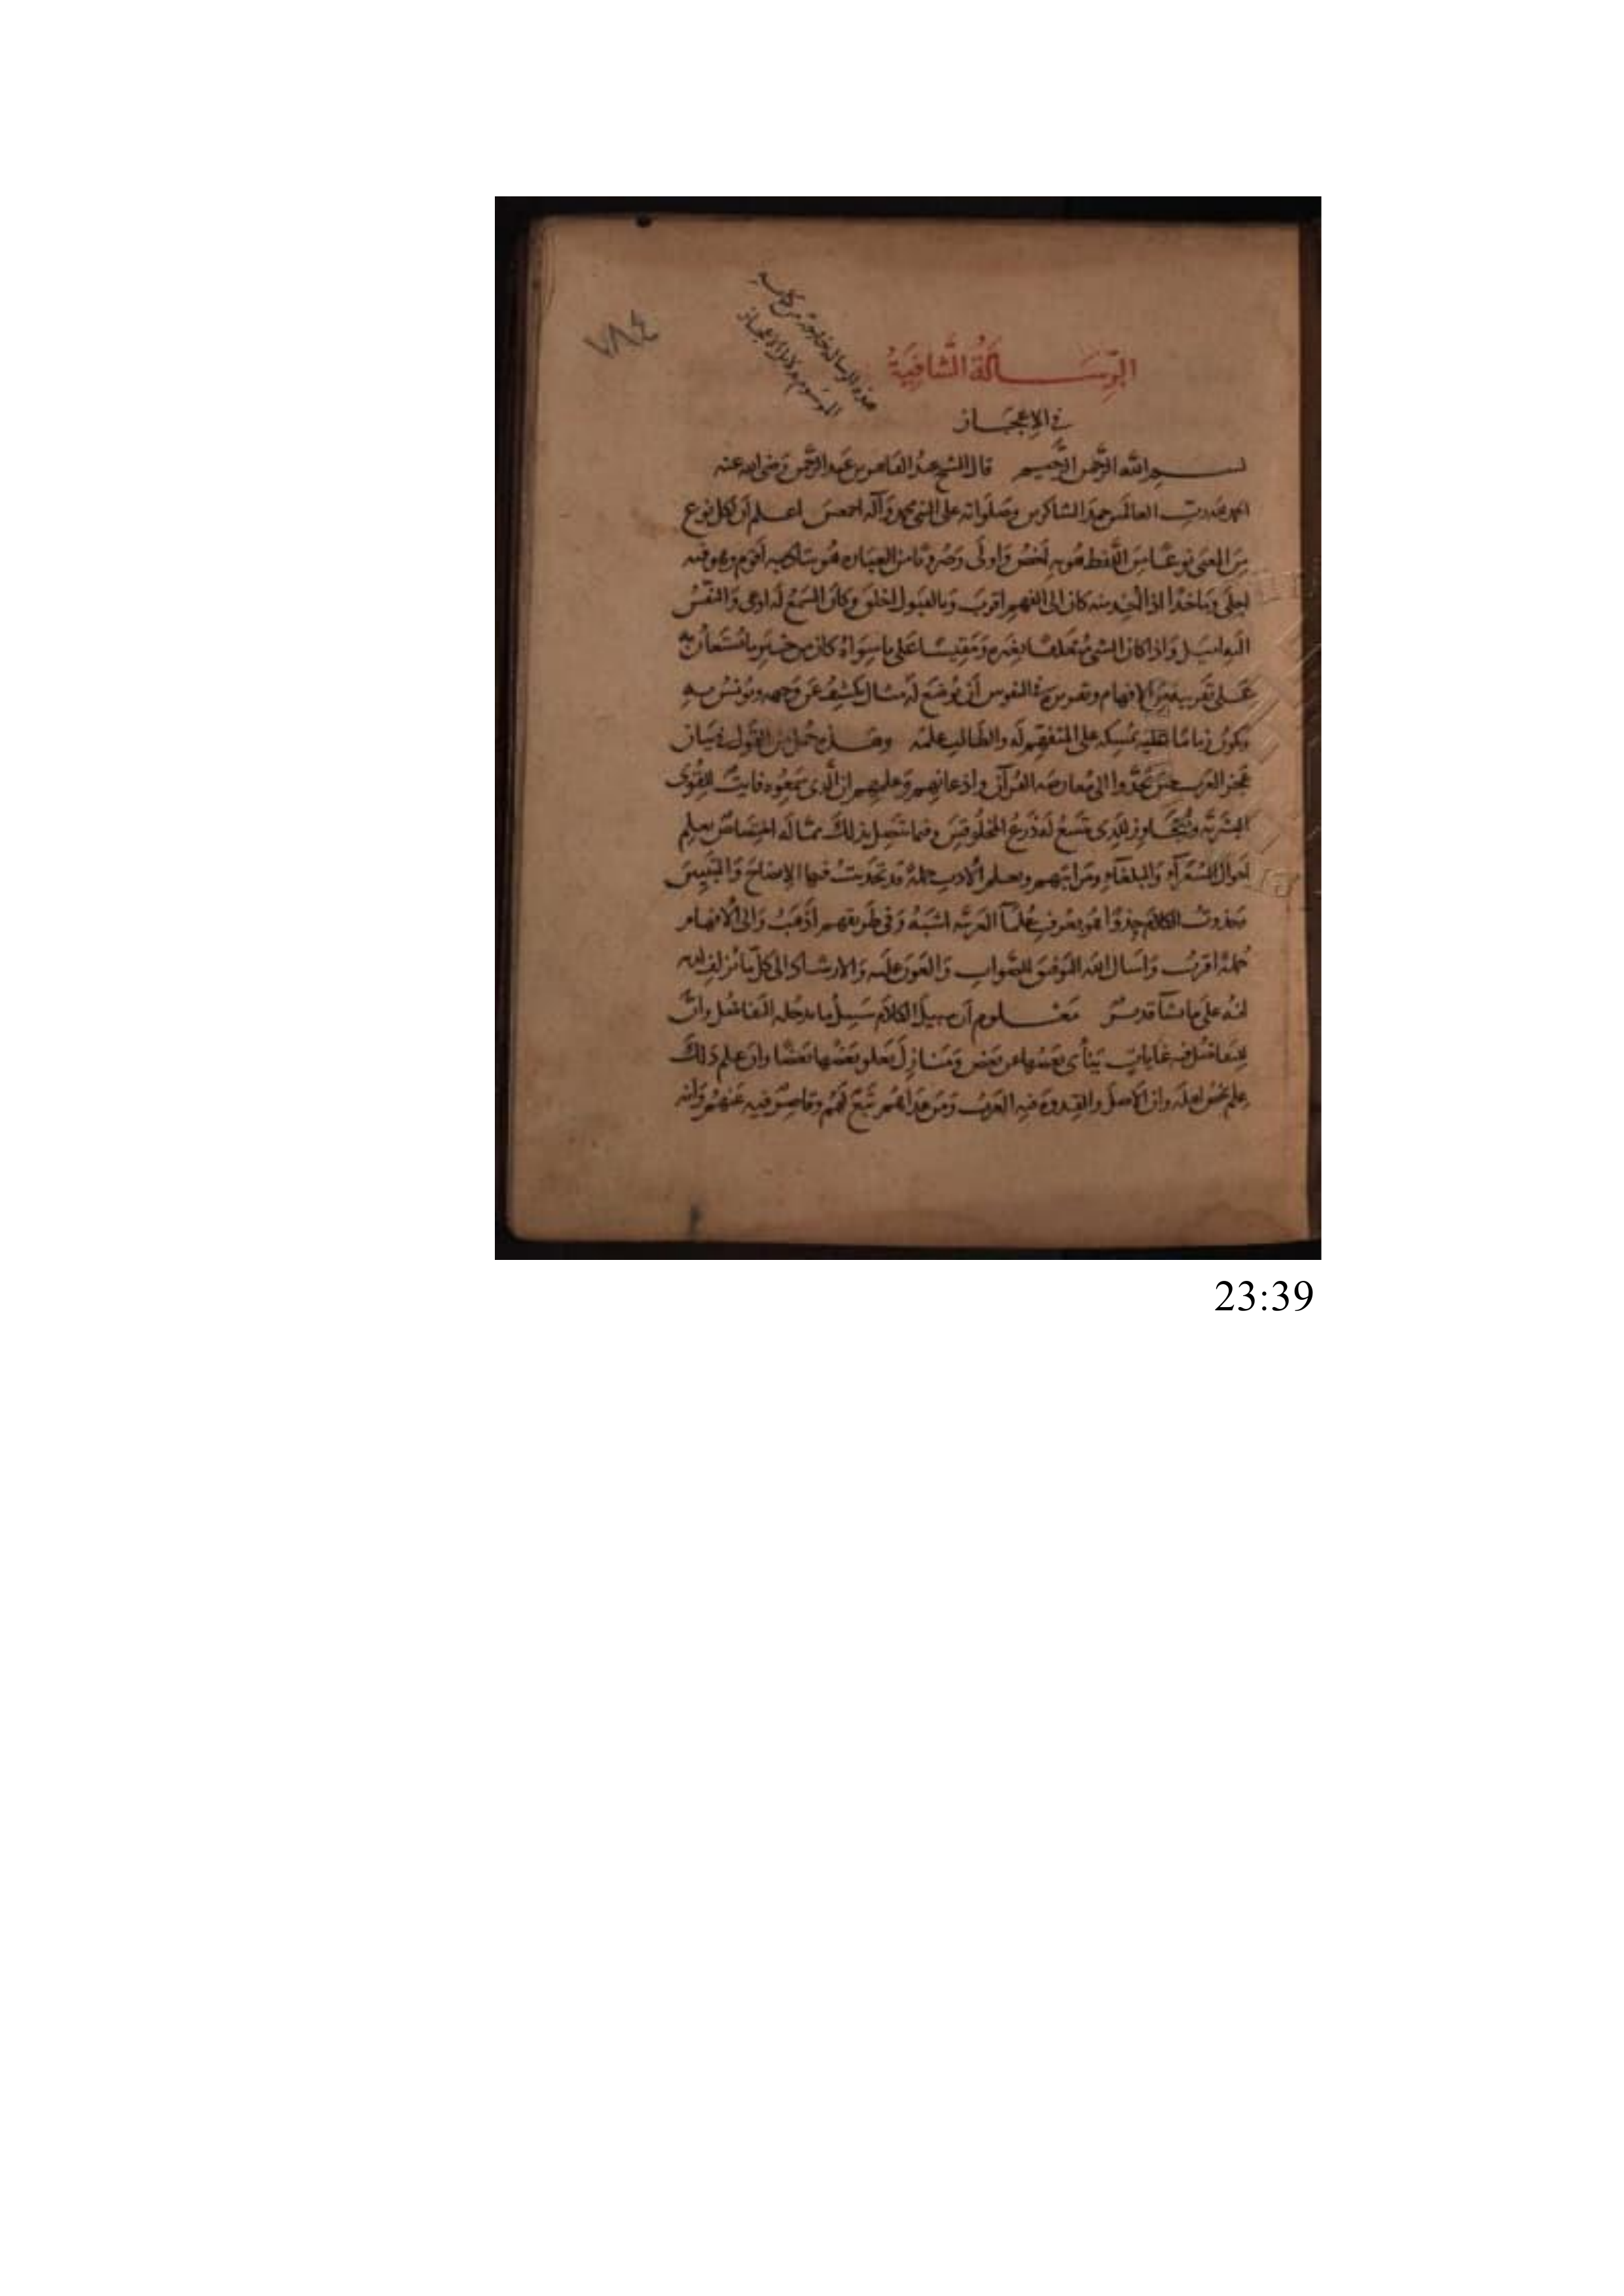 ١٨٤
هذه الرسالة خارجة من كتابه
الموسوم بدلائل الاعجاز
الرِّسَالَةُ الشَّافِيَةُ
في الإعجاز
بسم الله الرَّحمن الرَّحيم قال الشيخ عبدُ القاهر بن عَبد الرَّحمن رَضى الله عنه
الحمد لله ربّ العالمين حمدَ الشاكرين وصَلَواته على النبي محمد وَآله اجمعين اعلم أن لكل نوع
مِنَ المعنى نوعًا من اللَّفظ هُو بِه أَخصُّ وَأولَى وَضُروبًا من العبارة هُو بتأديته أقوم وهو فيه
أجلَى ومأخذًا اذا أُخِذ منه كان الى الفهم اقربَ وبالقبول أخلق وكان السَّمعُ له أوعى وَالنَّفسُ
اليه اميَل وَاذا كان الشىء متعلقا بغيره وَمَقِيسًا عَلى ما سِوَاهُ كان من خير ما يُستَعان به
عَلى تقريبه من الافهام وتقريره في النفوس أن يُوضَع لَه مثال يكشِفُ عَن وَجهه ويُؤنس به
ويكونُ زمامًا عليه يُمسِكه على المتفهم لَه والطالب علمه وهذه جُمل من القَول في بيان
عَجز العَرب حين تُحُدُّوا الى مُعارضه القُرآن وإذعانهم وَعلمهم ان الَّذى سَمِعُوه فايت للقُوَى
البشريّه ومُتَجاوز للذى يتّسعُ لَه ذَرعُ المخلُوقين وفيما يتّصل بذلك ممّا لَه اختصاصٌ بعِلم
أحوال الشعَرآءِ وَالبلغآءِ ومَراتبهم وبعلم الأدب جملةً قد تحرّيتُ فيها الإيضاحَ وَالتبيينَ
وحَذوتُ الكلامَ حذوًا هو بعُرفِ عُلمآء العربيّه اشبَهُ وَفي طريقهم أذهَبُ وَالى الأفهام
جُملةً اقربُ وَأسأل الله التوفيق للصَّواب وَالعَون عليه وَالارشاد الى كل ما يُزلف لديه
انه على ما يشآء قديرٌ مَعلوم أن سبيلَ الكلام سَبيلُ ما يدخله التفاضُل وانّ
للتفاضُل فيه غاياتٍ ينأى بَعضُها عن بَعضٍ وَمَنازِلَ يَعلو بَعضُها بَعضًا وأن عِلمَ ذلك
عِلم يخصُّ اهلَه وان الأصل والقدوة فيه العَربُ ومَن عَداهُم تَبَعٌ لَهُم وقاصِرٌ فيه عَنهُم وَانه
23:39